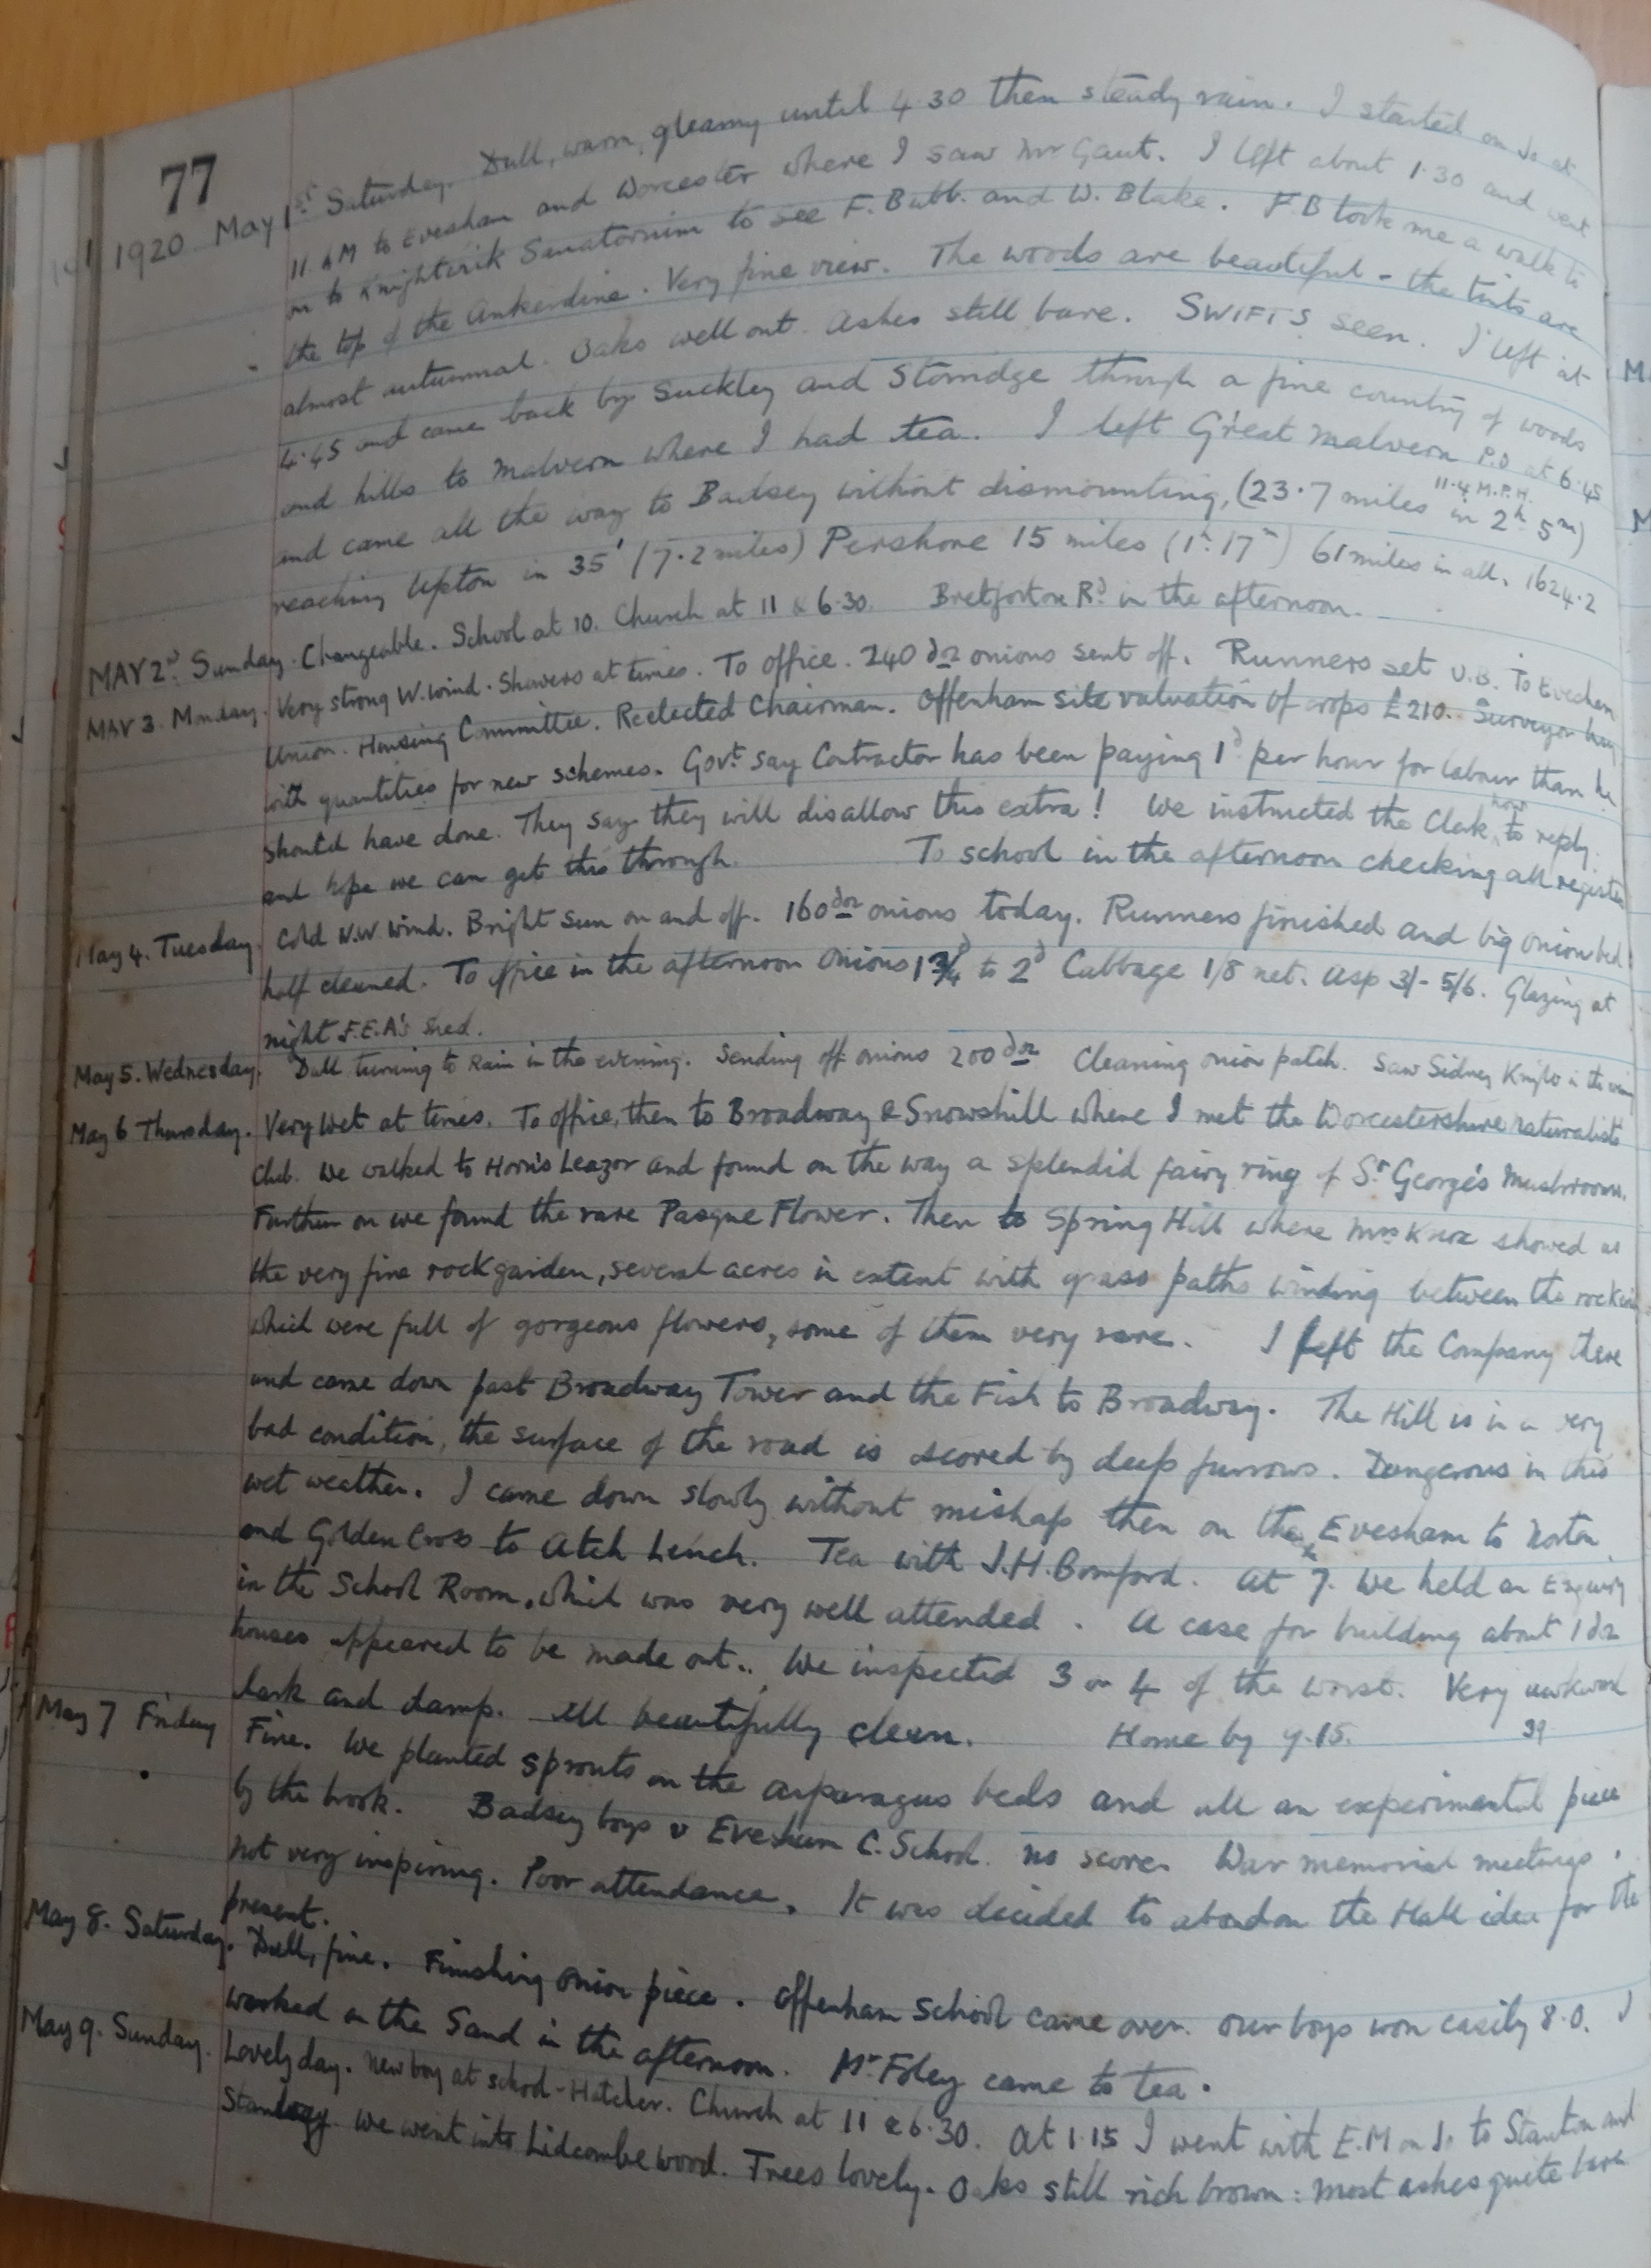 77
1920 May 1st Saturday. Dull, warm, gleamy until 4.30 then steady rain. I started on Jo at
11 AM to Evesham and Worcester where I saw Mr Gaut. I left about 1.30 and went
on to Knightwick Sanatorium to see F. Bubb and W. Blake. F.B took me a walk to
the top of the Ankerdine. Very fine view. The woods are beautiful - the tints are
almost autumnal. Oaks well out. Ashes still bare. SWIFTS seen. I left at
4.45 and came back by Suckley and Storridge through a fine country of woods
and hills to Malvern where I had tea. I left Great Malvern P.O at 6.45
and came all the way to Badsey without dismounting, (23.7 miles in 2h 5m) 11.4 M.P.H.
reaching Upton in 35' (7.2 miles) Pershore 15 miles (1h 17m) 61 miles in all. 1624.2
MAY 2nd Sunday. Changeable. School at 10. Church at 11 & 6.30. Bretforton Rd in the afternoon.
MAY 3. Monday. Very strong W. wind. Showers at times. To office. 240 doz onions sent off. Runners set U.B. To Evesham
Union. Housing Committee. Reelected Chairman. Offenham site valuation of crops £210. Surveyor busy
with quantities for new schemes. Govt. say Contractor has been paying 1d per hour for labour than he
should have done. They say they will disallow this extra! We instructed the Clerk how to reply
and hope we can get this through. To school in the afternoon checking all registers
May 4. Tuesday. Cold N.W. Wind. Bright sun on and off. 160 doz onions today. Runners finished and big onion bed
half cleaned. To office in the afternoon Onions 1¾ to 2d Cabbage 1/8 net. Asp 3/- 5/6. Glazing at
night F.E.A's shed.
May 5. Wednesday. Dull turning to Rain in the evening. Sending off onions 200 doz Cleaning onion patch. Saw Sidney Knight in the evening
May 6 Thursday. Very Wet at times. To office, then to Broadway & Snowshill where I met the Worcestershire Naturalists
Club. We walked to Horn's Leazor and found on the way a splendid fairy ring of St George's Mushrooms.
Further on we found the rare Pasque Flower. Then to Spring Hill where Mrs Knox showed us
the very fine rock garden, several acres in extent with grass paths winding between the rockeries
which were full of gorgeous flowers, some of them very rare. I left the Company there
and came down past Broadway Tower and the Fish to Broadway. The Hill is in a very
bad condition, the surface of the road is scored by deep furrows. Dangerous in this
wet weather. I came down slowly without mishap then on the Evesham to Norton
and Golden Cross to Atch Lench. Tea with J.H. Bomford. At 7. We held an Enquiry
in the School Room, which was very well attended. A case for building about 1 doz
houses appeared to be made out. We inspected 3 or 4 of the worst. Very awkward
dark and damp. All beautifully clean. Home by 9.15. 39
May 7 Friday Fine. We planted sprouts on the asparagus beds and all an experimental piece
by the brook. Badsey boys v Evesham C. School. no score. War memorial meetings.
Not very inspiring. Poor attendance. It was decided to abandon the Hall idea for the
present.
May 8. Saturday. Dull, fine. Finishing onion piece. Offenham School came over. Our boys won easily 8.0. I
worked on the Sand in the afternoon. Mr. Foley came to tea.
May 9. Sunday. Lovely day. New boy at school - Hatcher. Church at 11 & 6.30. At 1.15 I went with E.M on Jo to Stanton and
Stanway. We went into Lidcombe wood. Trees lovely. Oaks still rich brown: most ashes quite bare